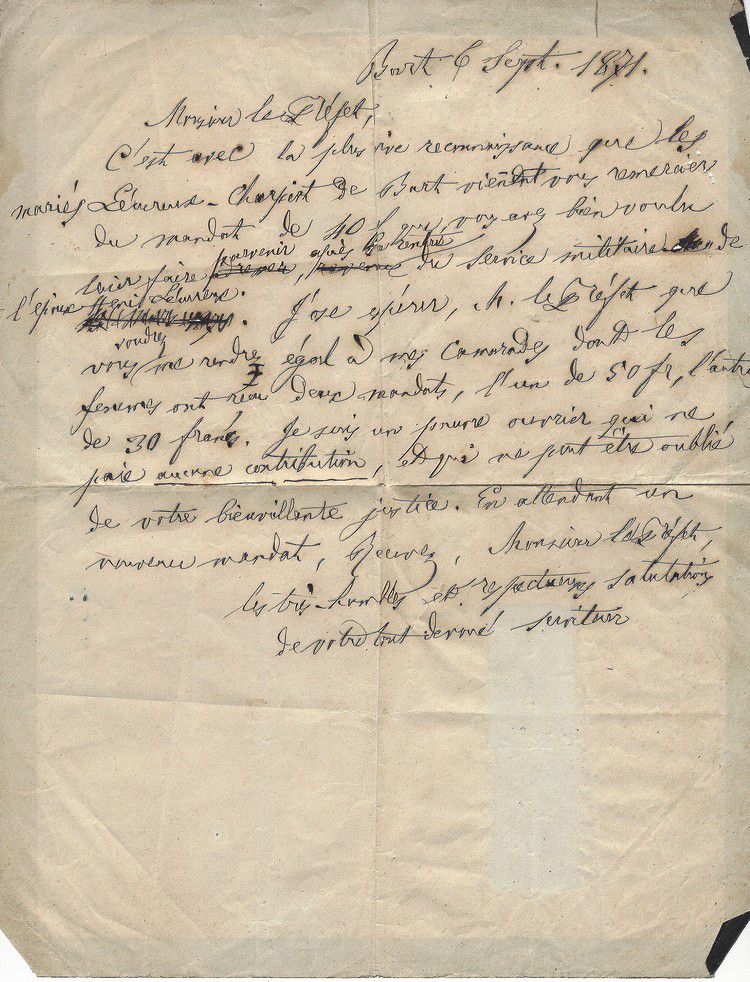 Bart 6 Sept. 1871.
Monsieur le Préfet,
C'est avec la plus vive reconnaissance que les
mariés Lévureux - Charpiot de Bart viennent vous remercier
du mandat de 40 f que vous avez bien voulu
faire parvenir, après la rentrée du service militaire de
l'époux Lévureux.
J'ose espérer, M. le Préfet que
vous voudrez me rendre égal à mes camarades dont les
femmes ont reçu deux mandats, l'un de 50 fr, l'autre
de 30 francs. Je suis un pauvre ouvrier qui ne
paie aucune contribution, et qui ne peut être oublié
de votre bienveillante justice. En attendant un
nouveau mandat, Recevez, Monsieur le Préfet,
les très-humbles et respectueuses salutations
de votre tout dévoué serviteur